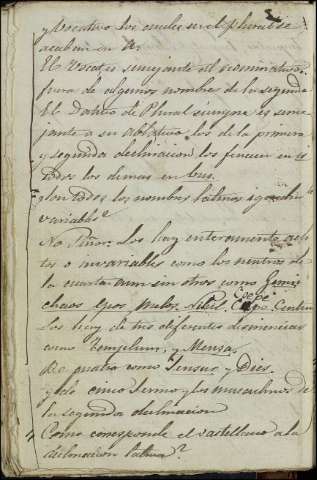 y Vocativo los cuales en el plural se
acaban en A.
El Vocat.º semejante al nominativo
fuera de algunos nombre de la segunda
El Dativo de Plural siempre es seme
jante a su Ablativo los de la primera
y segunda declinacion los fenecen en is
todos los demas en bus.
Son todos los nombres latinos
variables
No Señor. Los hay enteramente
o invariables como los neutros de
la cuarta aun sin otros como
chaos Epos, Melos, Nihil, Cepe
Los hay de tres diferentes
como Templum, y Mensa,
De cuatro como Sensus, y Dies
y de cinco Sermo y los masculinos de
la segunda declinacion
Como corresponde el castellano a la
declinacion latina?